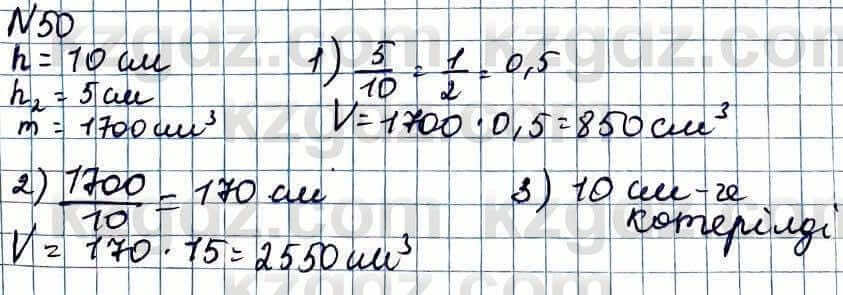 N50
h = 10 см
h₂ = 5 см
m = 1700 см³
1) 5/10 = 1/2 = 0,5
V = 1700 · 0,5 = 850 см³
2) 1700/10 = 170 см
V = 170 · 15 = 2550 см³
3) 10 см-ге
көтерілді